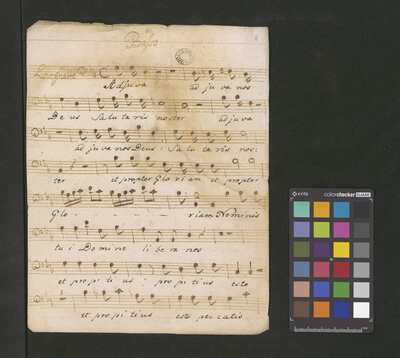 Basso
Adjuva adjuva nos
Deus Salutaris noster adjuva
adjuva nos Deus Salutaris nos:
ter et propter Gloriam et propter
Glo - - - - - riam Nominis
tui Domine libera nos
et propitius propitius esto
et propitius esto peccatis
colorchecker